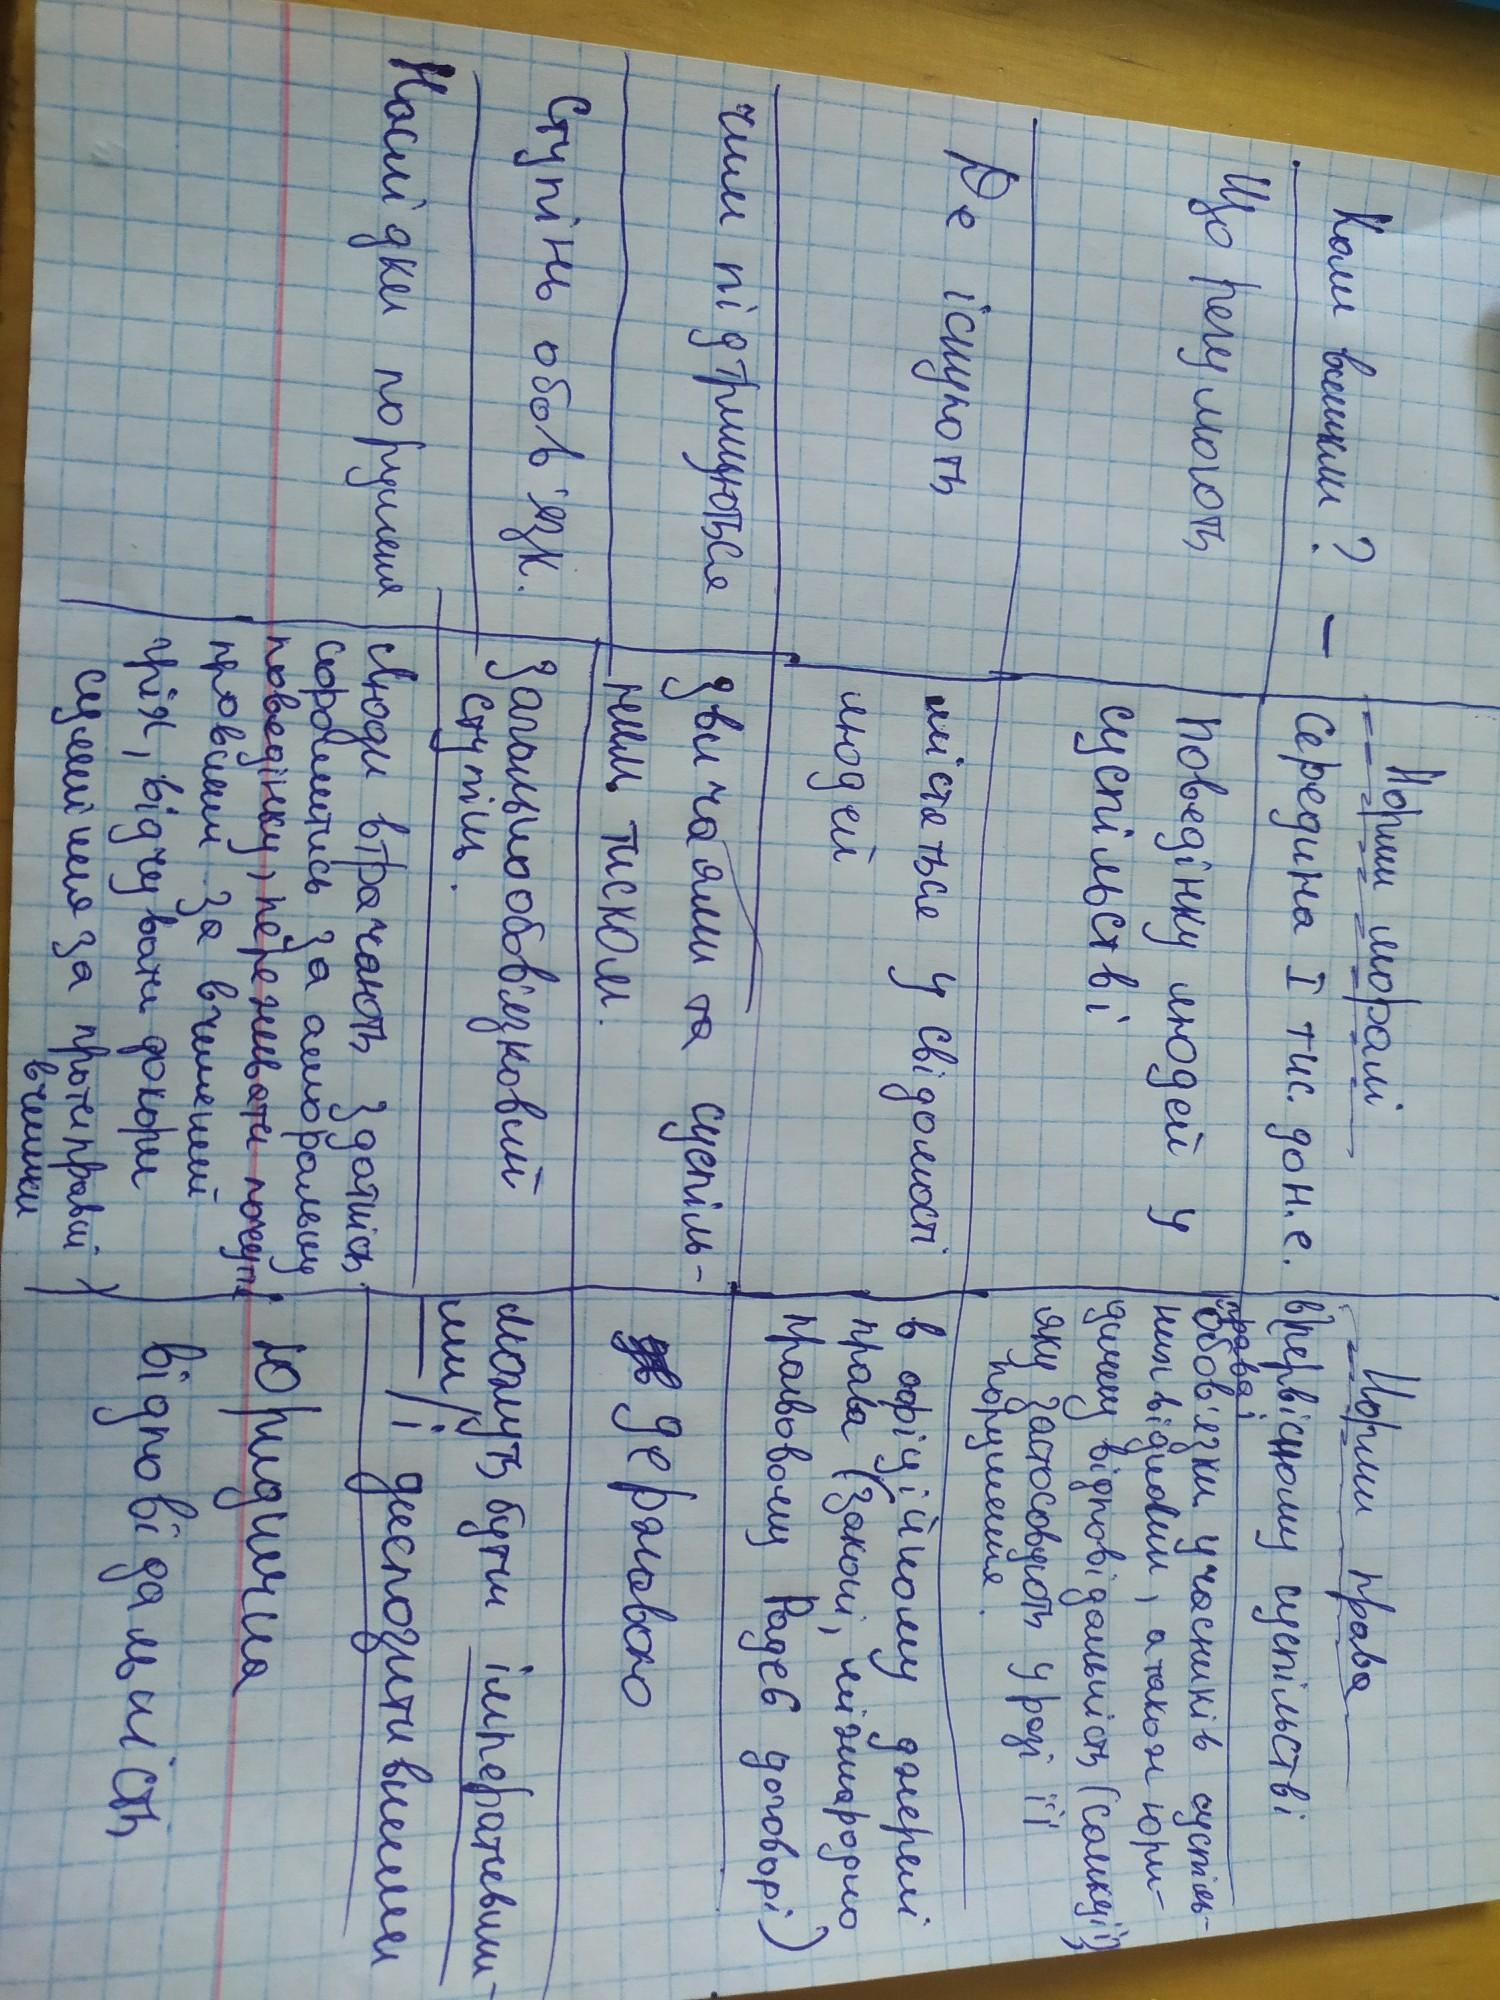 Норми моралі
Норми права
Коли виникли? –
Середина I тис. до н.е.
в первісному суспільстві
Що регулюють
Поведінку людей у
суспільстві
права і
обов'язки учасників суспіль-
них відносин, а також юри-
дичну відповідальність (санкції)
яку застосовують у разі її
порушення.
Де існують
містяться у свідомості
людей
в офіційному джерелі
права (законі, міжнародно
правовому договорі)
чим підтримуються
звичаями та суспіль-
ним тиском.
державою
Ступінь обов'язк.
Загальнообов'язковий
ступінь.
можуть бути імперативни-
ми / і диспозитивними
Наслідки порушення
люди втрачають здатність
соромитись за аморальну
поведінку, переживати
провини за вчинений
гріх, відчувати докори
сумління за протиправні
вчинки
Юридична
відповідальність